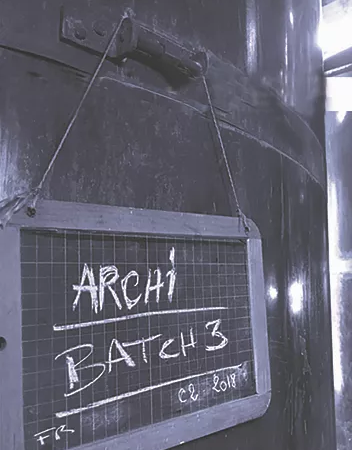 ARCHi
BATCH 3
C2 2018
FR